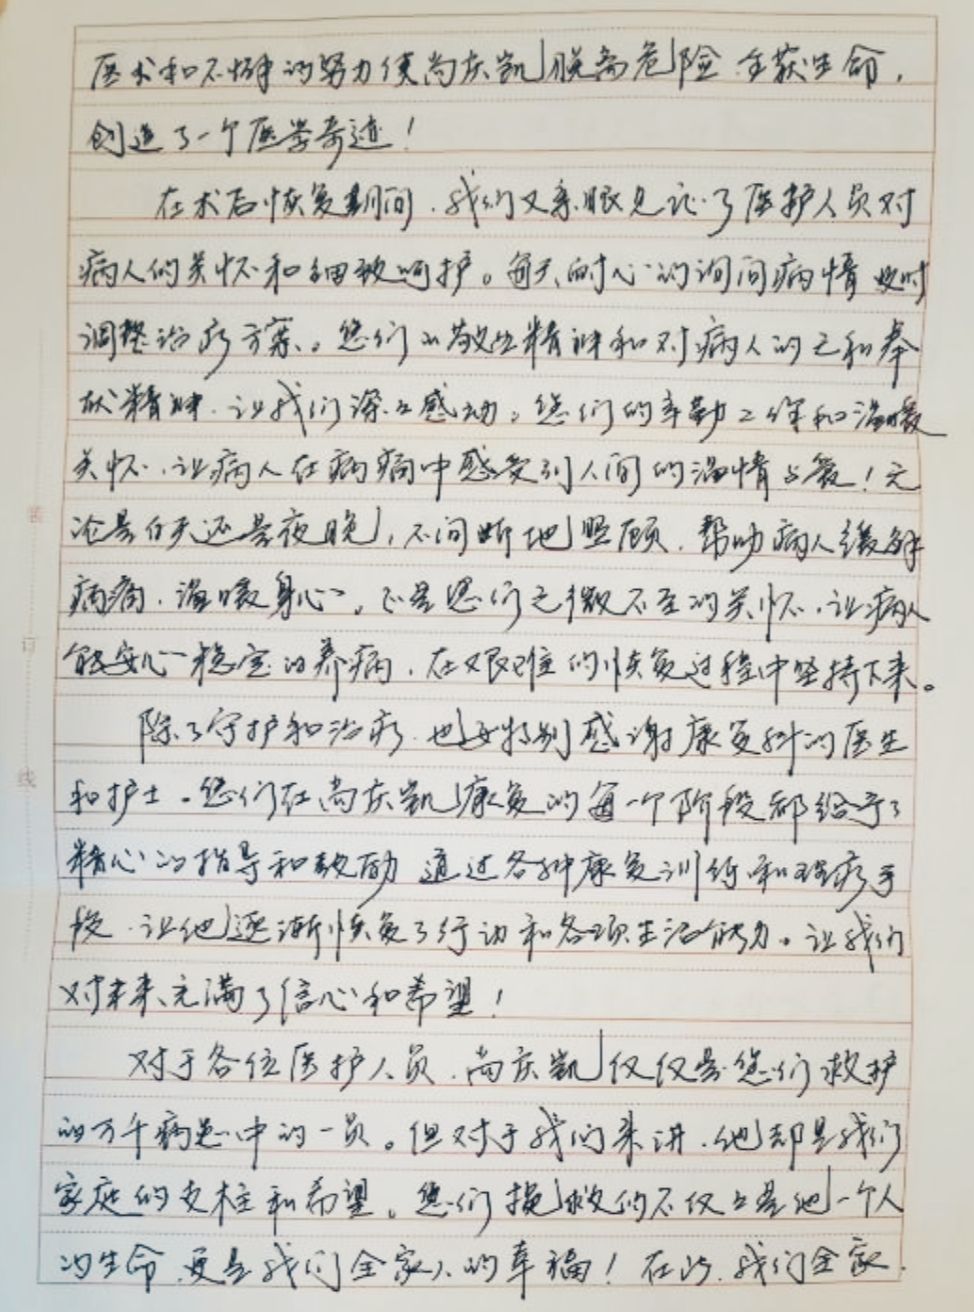 医术和不懈的努力使尚庆凯脱离危险,重获生命,
创造了一个医学奇迹!
在术后恢复期间,我们又亲眼见证了医护人员对
病人的关怀和细致呵护。每天耐心的询问病情 及时
调整治疗方案。您们的敬业精神和对病人的无私奉
献精神,让我们深深感动。您们的辛勤工作和温暖
关怀,让病人在病痛中感受到人间的温情与爱!无
论是白天还是夜晚,不间断地照顾,帮助病人缓解
病痛,温暖身心。正是您们无微不至的关怀,让病人
能安心稳定的养病,在艰难的恢复过程中坚持下来。
除了守护和治疗,也要特别感谢康复科的医生
和护士。您们在尚庆凯康复的每一个阶段都给予了
精心的指导和鼓励 通过各种康复训练和理疗手
段,让他逐渐恢复了行动和各项生活能力。让我们
对未来充满了信心和希望!
对于各位医护人员,尚庆凯仅仅是您们救护
的万千病患中的一员。但对于我们来讲,他却是我们
家庭的支柱和希望。您们挽救的不仅仅是他一个人
的生命 更是我们全家人的幸福!在此,我们全家
装
订
线